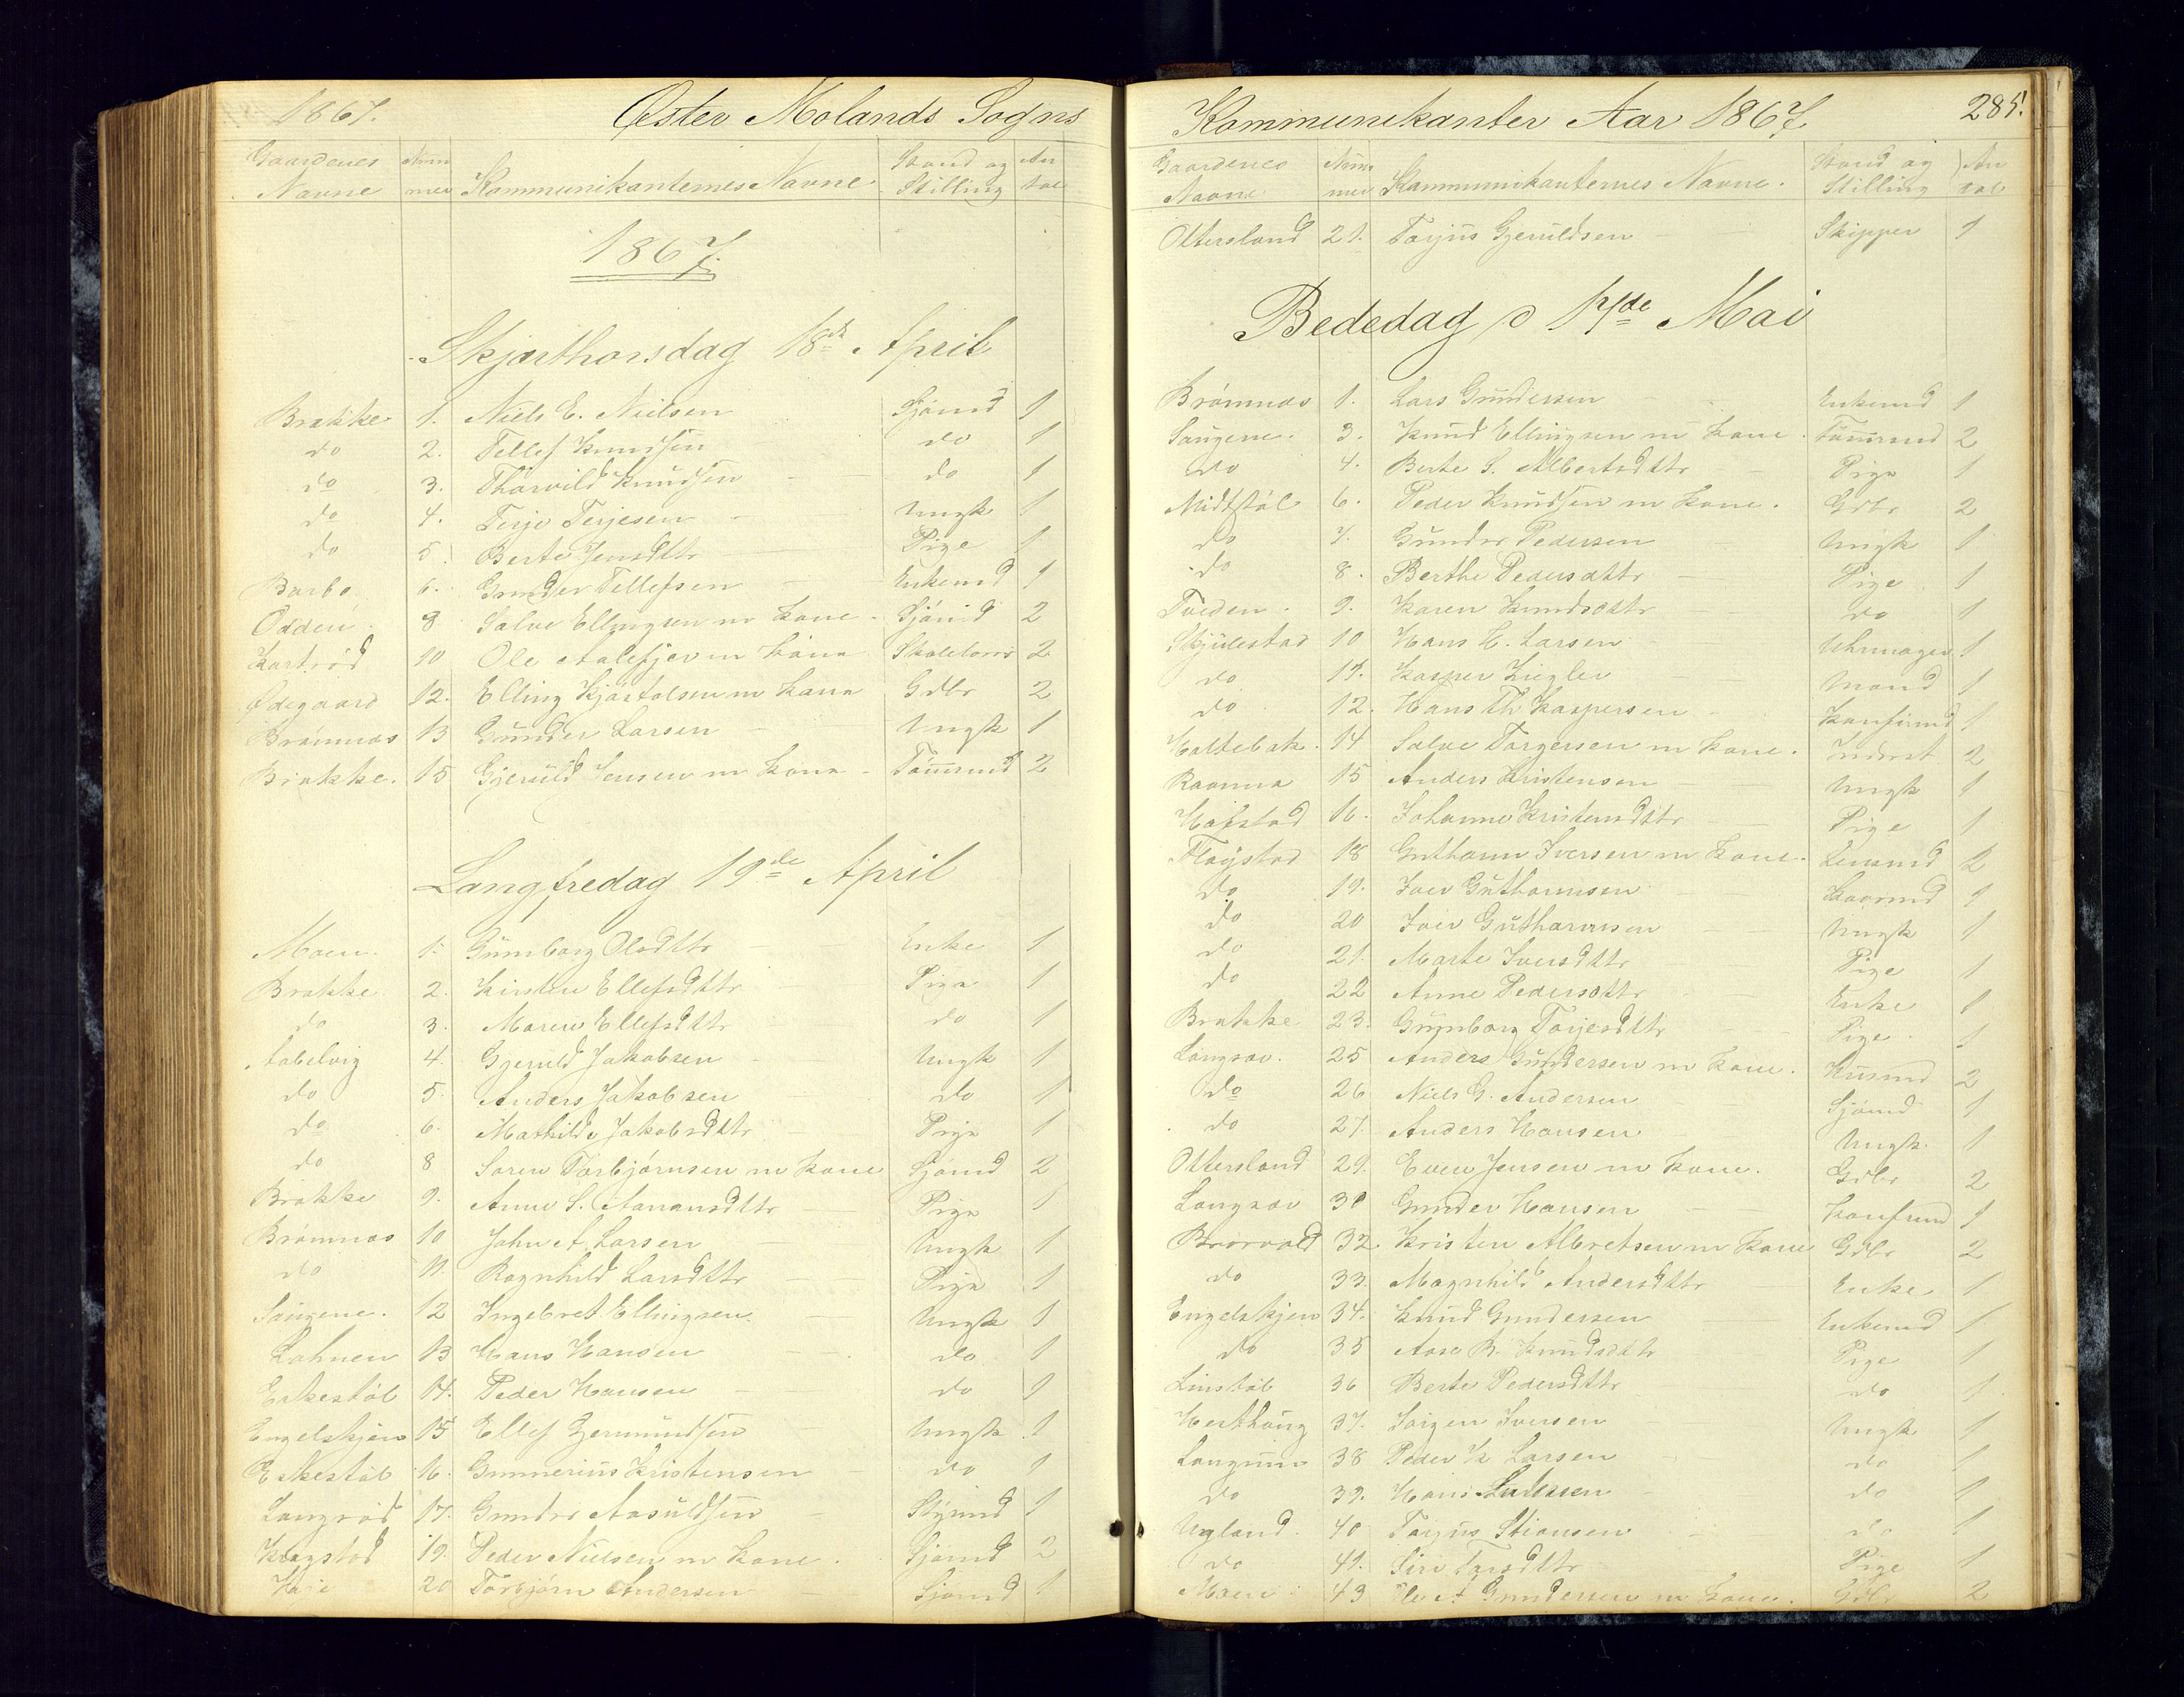 1867. Øster Molands Sogns
Gaardenes Navne Nummer Kommunikanternes Navne Stand og Stilling Antal
1867
Skjærthorsdag 18de April
Brække 1. Niels E. Nielsen Sjømd 1
do 2. Tellef Knudsen do 1
do 3. Thorvild Knudsen do 1
do 4. Terje Terjesen Ungk 1
do 5. Berte Jensdttr Pige 1
Barbo 6. Gunder Tellefsen Enkemd 1
Odden 8 Salve Ellingsen m Kone Sjømd 2
10 Ole m Kone 2
Ødegaard 12. Elling m Kone Gdbr 2
Brømnæs 13 Gunder Larsen Ungk 1
Brække. 15 Gjeruld Jensen m Kone Tømmrmd 2
Langfredag 19de April
Moen. 1. Gunnborg Olsdttr Enke 1
Brække 2. Kirsten Ellefsdttr Pige 1
do 3. Maren Ellefsdttr do 1
Aabelvig 4. Gjeruld Jakobsen Ungk 1
do 5. Anders Jakobsen do 1
do 6. Mathilde Jakobsdttr Pige 1
do 8 Søren Torbjørnsen m Kone Sjømd 2
Brække 9. Anne S. Aanonsdttr Pige 1
Brømnæs 10 John A. Larsen Ungk 1
do 11. Ragnhild Larsdttr Pige 1
Saugene. 12 Ingebret Ellingsen Ungk 1
13 Hans Hansen do 1
Eskestøl 14. Peder Hansen do 1
Engelskjøn 15 Ellef Germundsen Ungk 1
Eskestøl 16. Gunnerius Kristensen do 1
Langrød 17. Gunder Aasuldsen 1
Kragstad 19. Peder Nielsen m Kone. Sjømd 2
20 Torbjørn Andersen Sjømd 1
Kommunikanter Aar 1867 285.
Gaardenes Navne Nummer Kommunikanternes Navne. Stand og Stilling Antal
Ottersland 21. Torjus Gjeruldsen Skipper 1
Bededag d 17de Mai
Brømnæs 1. Lars Gundersen Enkemd 1
Saugene. 3. Knud Ellingsen m Kone. Tømmrmd 2
do 4. Berte S. Albertsdttr Pige 1
Midtstøl 6. Peder Knudsen m Kone. Gdbr 2
do 7. Gunder Pedersen Ungk 1
do 8. Berthe Pedersdttr Pige 1
Tveden. 9. Karen Knudsdttr do 1
Skjulestad 10 Hans L. Larsen Uhrmager 1
do 11. Kasper Ziegler Mand 1
do 12. Hans Th Kaspersen Konfirmd 1
Holtebæk. 14 Salve Torgersen m Kone. Inderst 2
Ravnna 15 Anders Kristensen Ungk 1
Hofstad 16. Johanne Kristensdttr Pige 1
Fløystad 18 Guthorm Iversen m Kone. 2
do 19. Iver Guthormsen 1
do 20 Iver Guthormsen Ungk 1
do 21. Marte Iversdttr Pige 1
do 22 Anne Pedersdttr Enke 1
Brække 23. Gunborg Torjesdttr Pige 1
Langsæv. 25 Anders Gundersen m Kone. Husmd 2
do 26 Niels G. Andersen Sjømd 1
do 27. Anders Hansen Ungk. 1
Ottersland 29. Even Jensen m Kone. Gdbr 2
Langsæv 30 Gunder Hansen Konfirmd 1
32 Kristen Albretsen m Kone Gdbr 2
do 33. Magnhild Andersdttr Enke 1
Engelskjøn 34. Knud Gundersen Enkemd 1
do 35 Aase B. Knudsdttr Pige 1
Linstøl 36 Berte Pedersdttr do 1
Hesthaug 37. Jørgen Iversen Ungk 1
Langum 38 Peder K Larsen do 1
do 39. Hans Larsen do 1
Ugland. 40 Torjus Stiansen do 1
do 41. Siri Larsdttr Pige 1
Moen 43 Ole A Gundersen m Kone. Gdbr 2